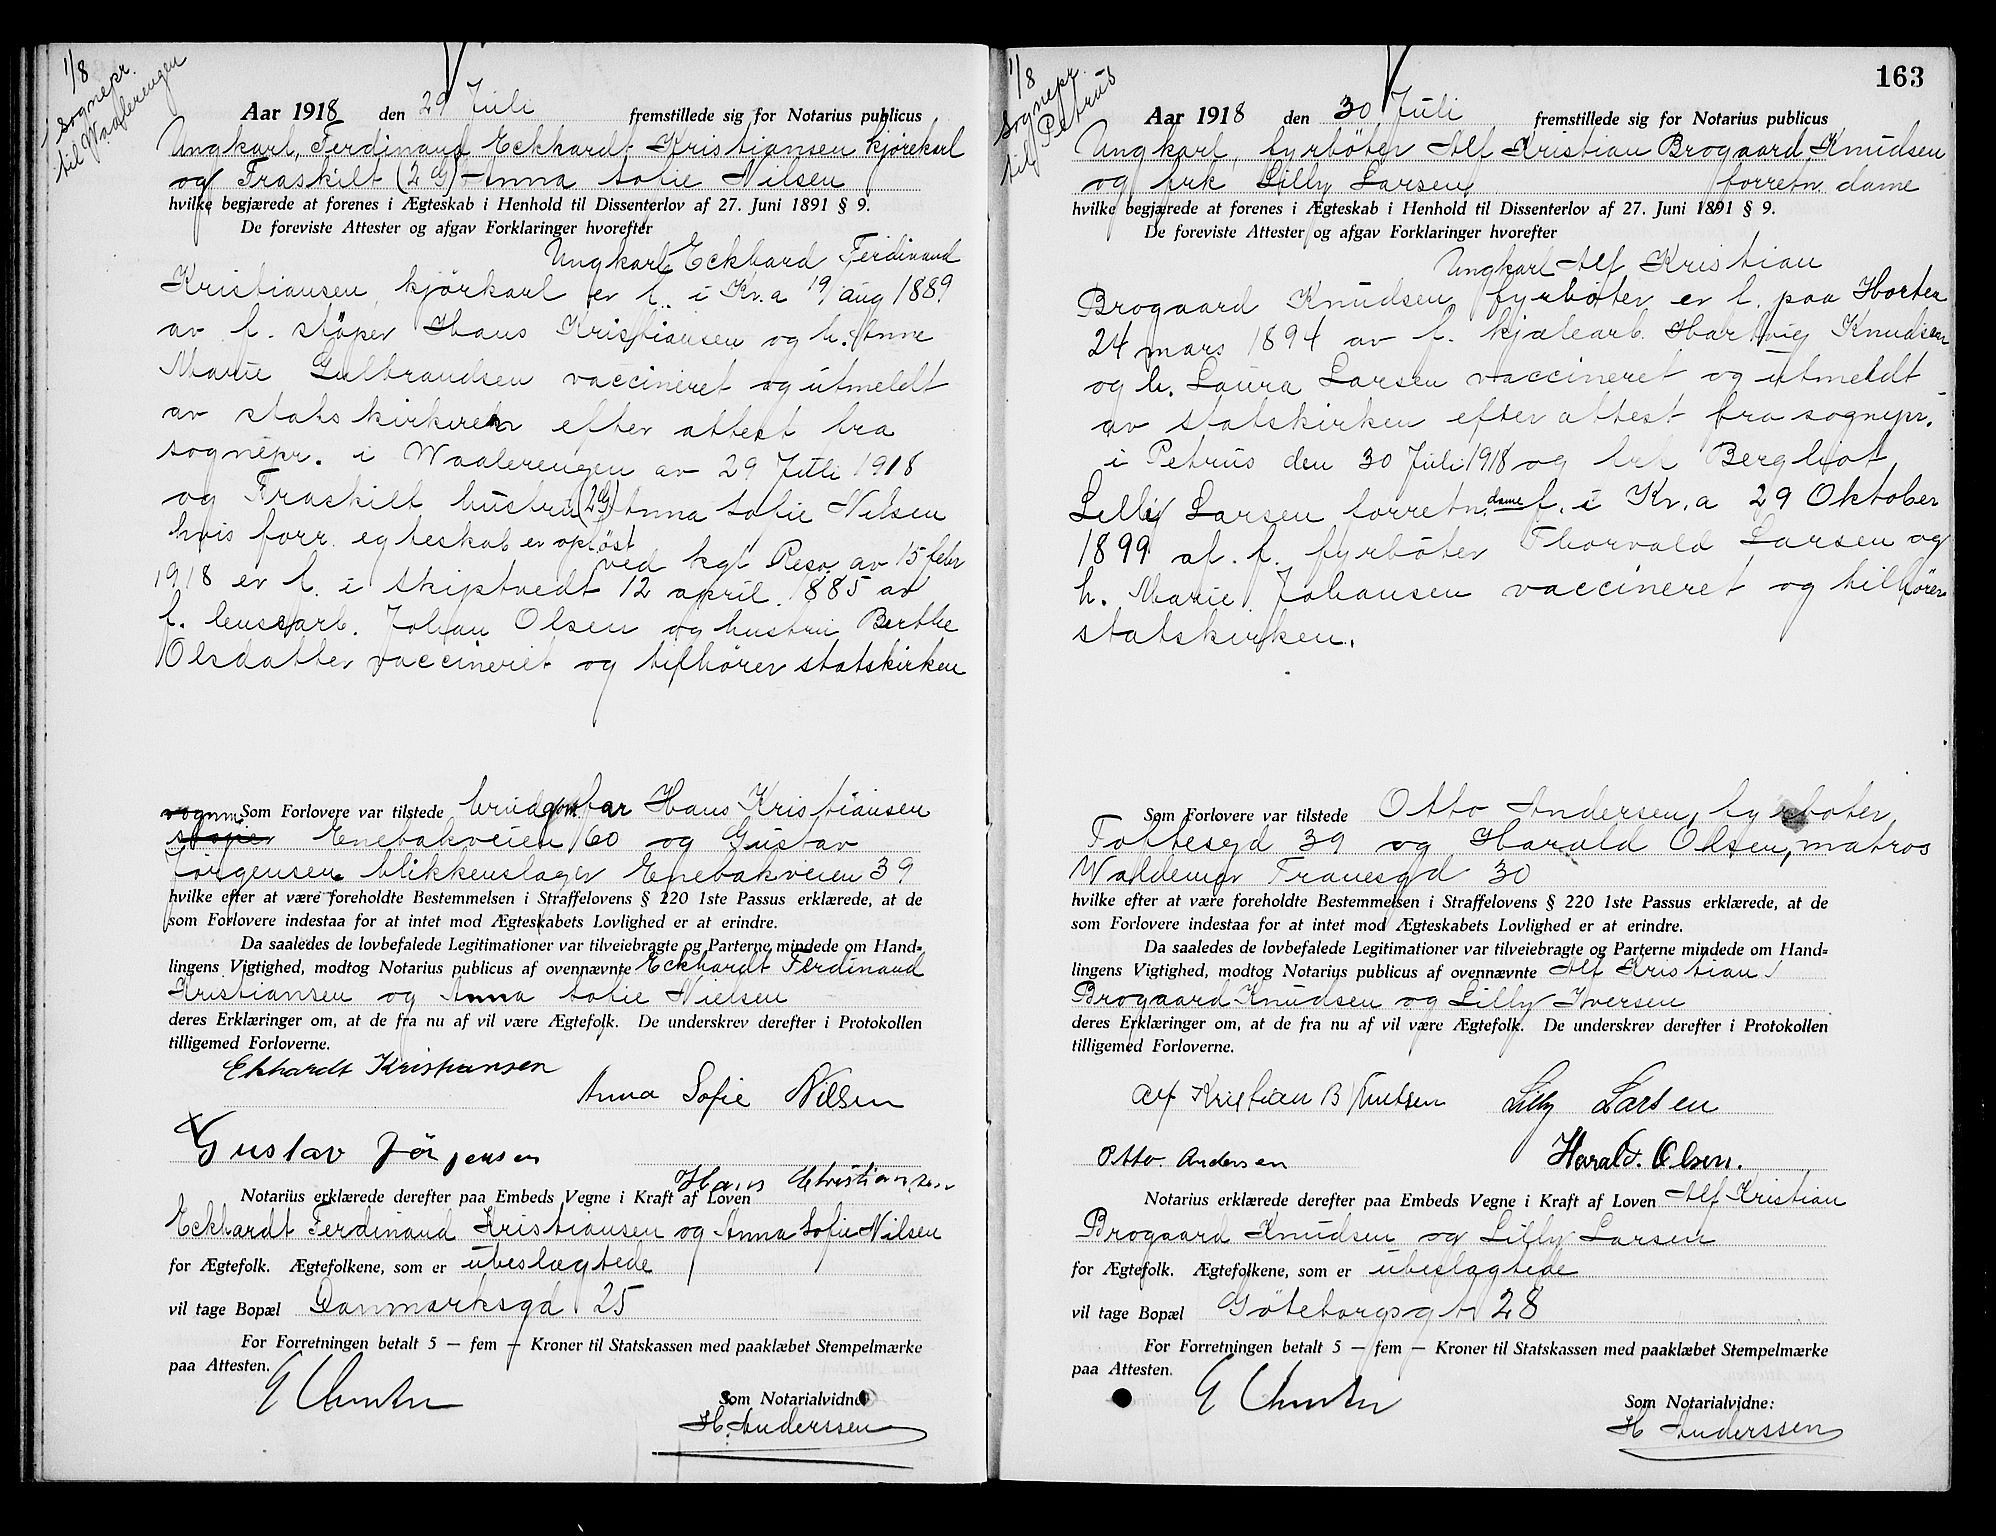 1/8
Sognepr.
til Waalerengen
Aar 1918 den 29 Juli fremstillede sig for Notarius publicus
Ungkarl, Ferdinand Eckhardt Kristiansen kjørekarl
og Fraskilt (2 G) Anna Sofie Nilsen
hvilke begjærede at forenes i Ægteskab i Henhold til Dissenterlov af 27. Juni 1891 § 9.
De foreviste Attester og afgav Forklaringer hvorefter
Ungkarl Eckhard Ferdinand
Kristiansen, kjörkarl er f. i Kr.a 19 aug 1889
av f. støper Hans Kristiansen og h. Anne
Marie Gulbrandsen vaccineret og utmeldt
av statskirken efter attest fra
sognepr. i Waalerengen av 29 Juli 1918
og Fraskilt hustru (2G) Anna Sofie Nilsen
hvis forr. egteskab er opløst
ved kgl Reso. av 15 febr
1918 er f. i Skiptvedt 12 april 1885 av
f. lensarb. Johan Olsen og hustru Berthe
Olsdatter vaccineret og tilhører statskirken
Som Forlovere var tilstede brudgom. far Hans Kristiansen
vognm. støper Enebakveien 60 og Gustav
Jörgensen blikkenslager Enebakveien 39
hvilke efter at være foreholdte Bestemmelsen i Straffelovens § 220 1ste Passus erklærede, at de
som Forlovere indestaa for at intet mod Ægteskabets Lovlighed er at erindre.
Da saaledes de lovbefalede Legitimationer var tilveiebragte og Parterne mindede om Hand-
lingens Vigtighed, modtog Notarius publicus af ovennævnte Eckhardt Ferdinand
Kristiansen og Anna Sofie Nielsen
deres Erklæringer om, at de fra nu af vil være Ægtefolk. De underskrev derefter i Protokollen
tilligemed Forloverne.
Ekhardt Kristiansen
Anna Sofie Nilsen
Gustav Jörgensen
Hans Christiansen
Notarius erklærede derefter paa Embeds Vegne i Kraft af Loven
Eckhardt Ferdinand Kristiansen og Anna Sofie Nilsen
for Ægtefolk. Ægtefolkene, som er ubeslægtede
vil tage Bopæl Danmarksgd 25
For Forretningen betalt 5 — fem — Kroner til Statskassen med paaklæbet Stempelmærke
paa Attesten.
Som Notarialvidne
H. Anderssen
163
1/8
Sognepr.
til Petrus
Aar 1918 den 30 Juli fremstillede sig for Notarius publicus
Ungkarl, fyrböter Alf Kristian Brogaard Knudsen
og frk Lilly Larsen forretn. dame
hvilke begjærede at forenes i Ægteskab i Henhold til Dissenterlov af 27. Juni 1891 § 9.
De foreviste Attester og afgav Forklaringer hvorefter
Ungkarl Alf Kristian
Brogaard Knudsen, fyrbøter er f. paa Horten
24 mars 1894 av f. kjælearb. Hartvig Knudsen
og h. Laura Larsen vaccineret og utmeldt
av statskirken efter attest fra sognepr.
i Petrus den 30 Juli 1918 og frk Bergliot
Lilly Larsen forretn. dame f. i Kr.a 29 Oktober
1899 af. f. fyrböter Thorvald Larsen og
h. Marie Johansen vaccineret og tilhører
statskirken.
Som Forlovere var tilstede Otto Andersen, fyrböter
Toftesgd 39 og Harald Olsen, matros
Waldemar Tranesgd 30
hvilke efter at være foreholdte Bestemmelsen i Straffelovens § 220 1ste Passus erklærede, at de
som Forlovere indestaa for at intet mod Ægteskabets Lovlighed er at erindre.
Da saaledes de lovbefalede Legitimationer var tilveiebragte og Parterne mindede om Hand-
lingens Vigtighed, modtog Notarius publicus af ovennævnte Alf Kristian
Brogaard Knudsen og Lilly Iversen
deres Erklæringer om, at de fra nu af vil være Ægtefolk. De underskrev derefter i Protokollen
tilligemed Forloverne.
Alf Kristian B Knutsen Lilly Larsen
Otto Andersen Harald. Olsen.
Notarius erklærede derefter paa Embeds Vegne i Kraft af Loven Alf Kristian
Brogaard Knudsen og Lilly Larsen
for Ægtefolk. Ægtefolkene, som er ubeslagtede
vil tage Bopæl Göteborgsgt 28
For Forretningen betalt 5 — fem — Kroner til Statskassen med paaklæbet Stempelmærke
paa Attesten.
Som Notarialvidne:
H Anderssen